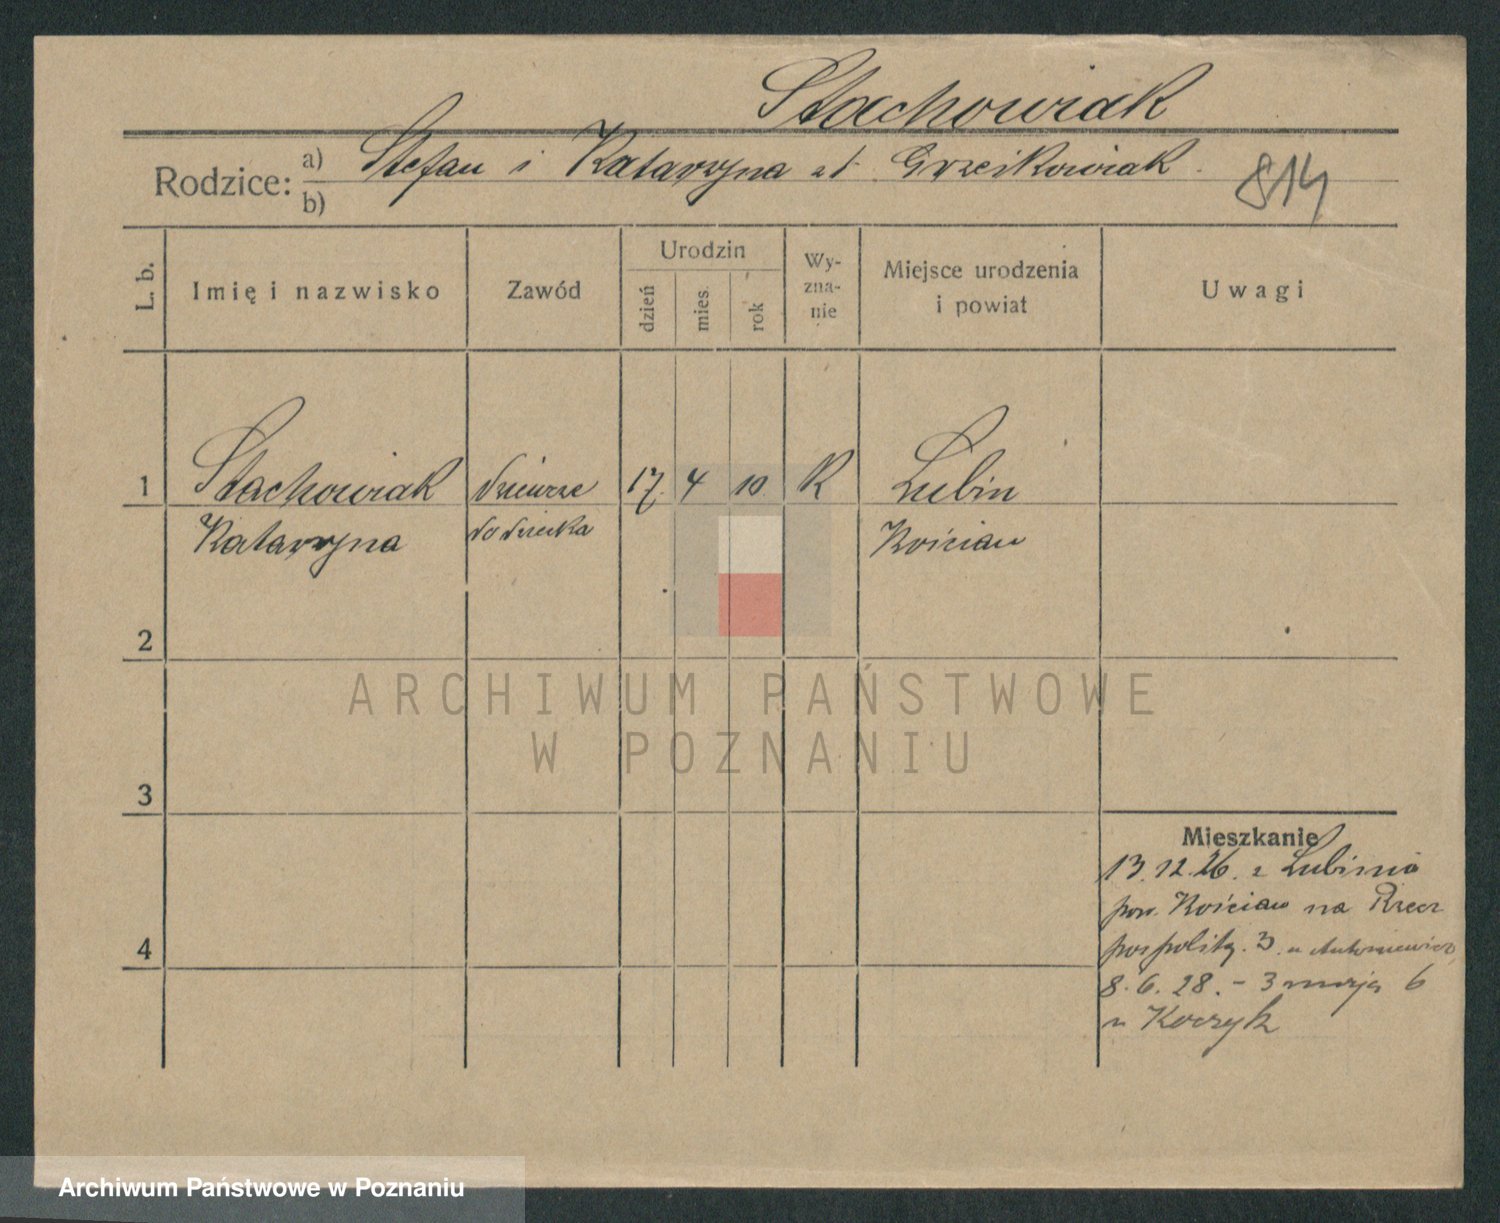 Stachowiak
Rodzice: a) Stefan i Katarzyna zd. Grześkowiak
b)
814
L. b.
Imię i nazwisko
Zawód
Urodzin
dzień
mies.
rok
Wy-
zna-
nie
Miejsce urodzenia
i powiat
Uwagi
1 Stachowiak dziewcze 17. 4 10. R Lubin
Katarzyna do dziecka Kościan
2
3
4
Mieszkanie
13.12.26. z Lubinia
pow. Kościan na Rzecz
pospolitą. 3. u Antoniewicz
8.6.28. - 3 maja 6
u Koczyk
ARCHIWUM PAŃSTWOWE
W POZNANIU
Archiwum Państwowe w Poznaniu